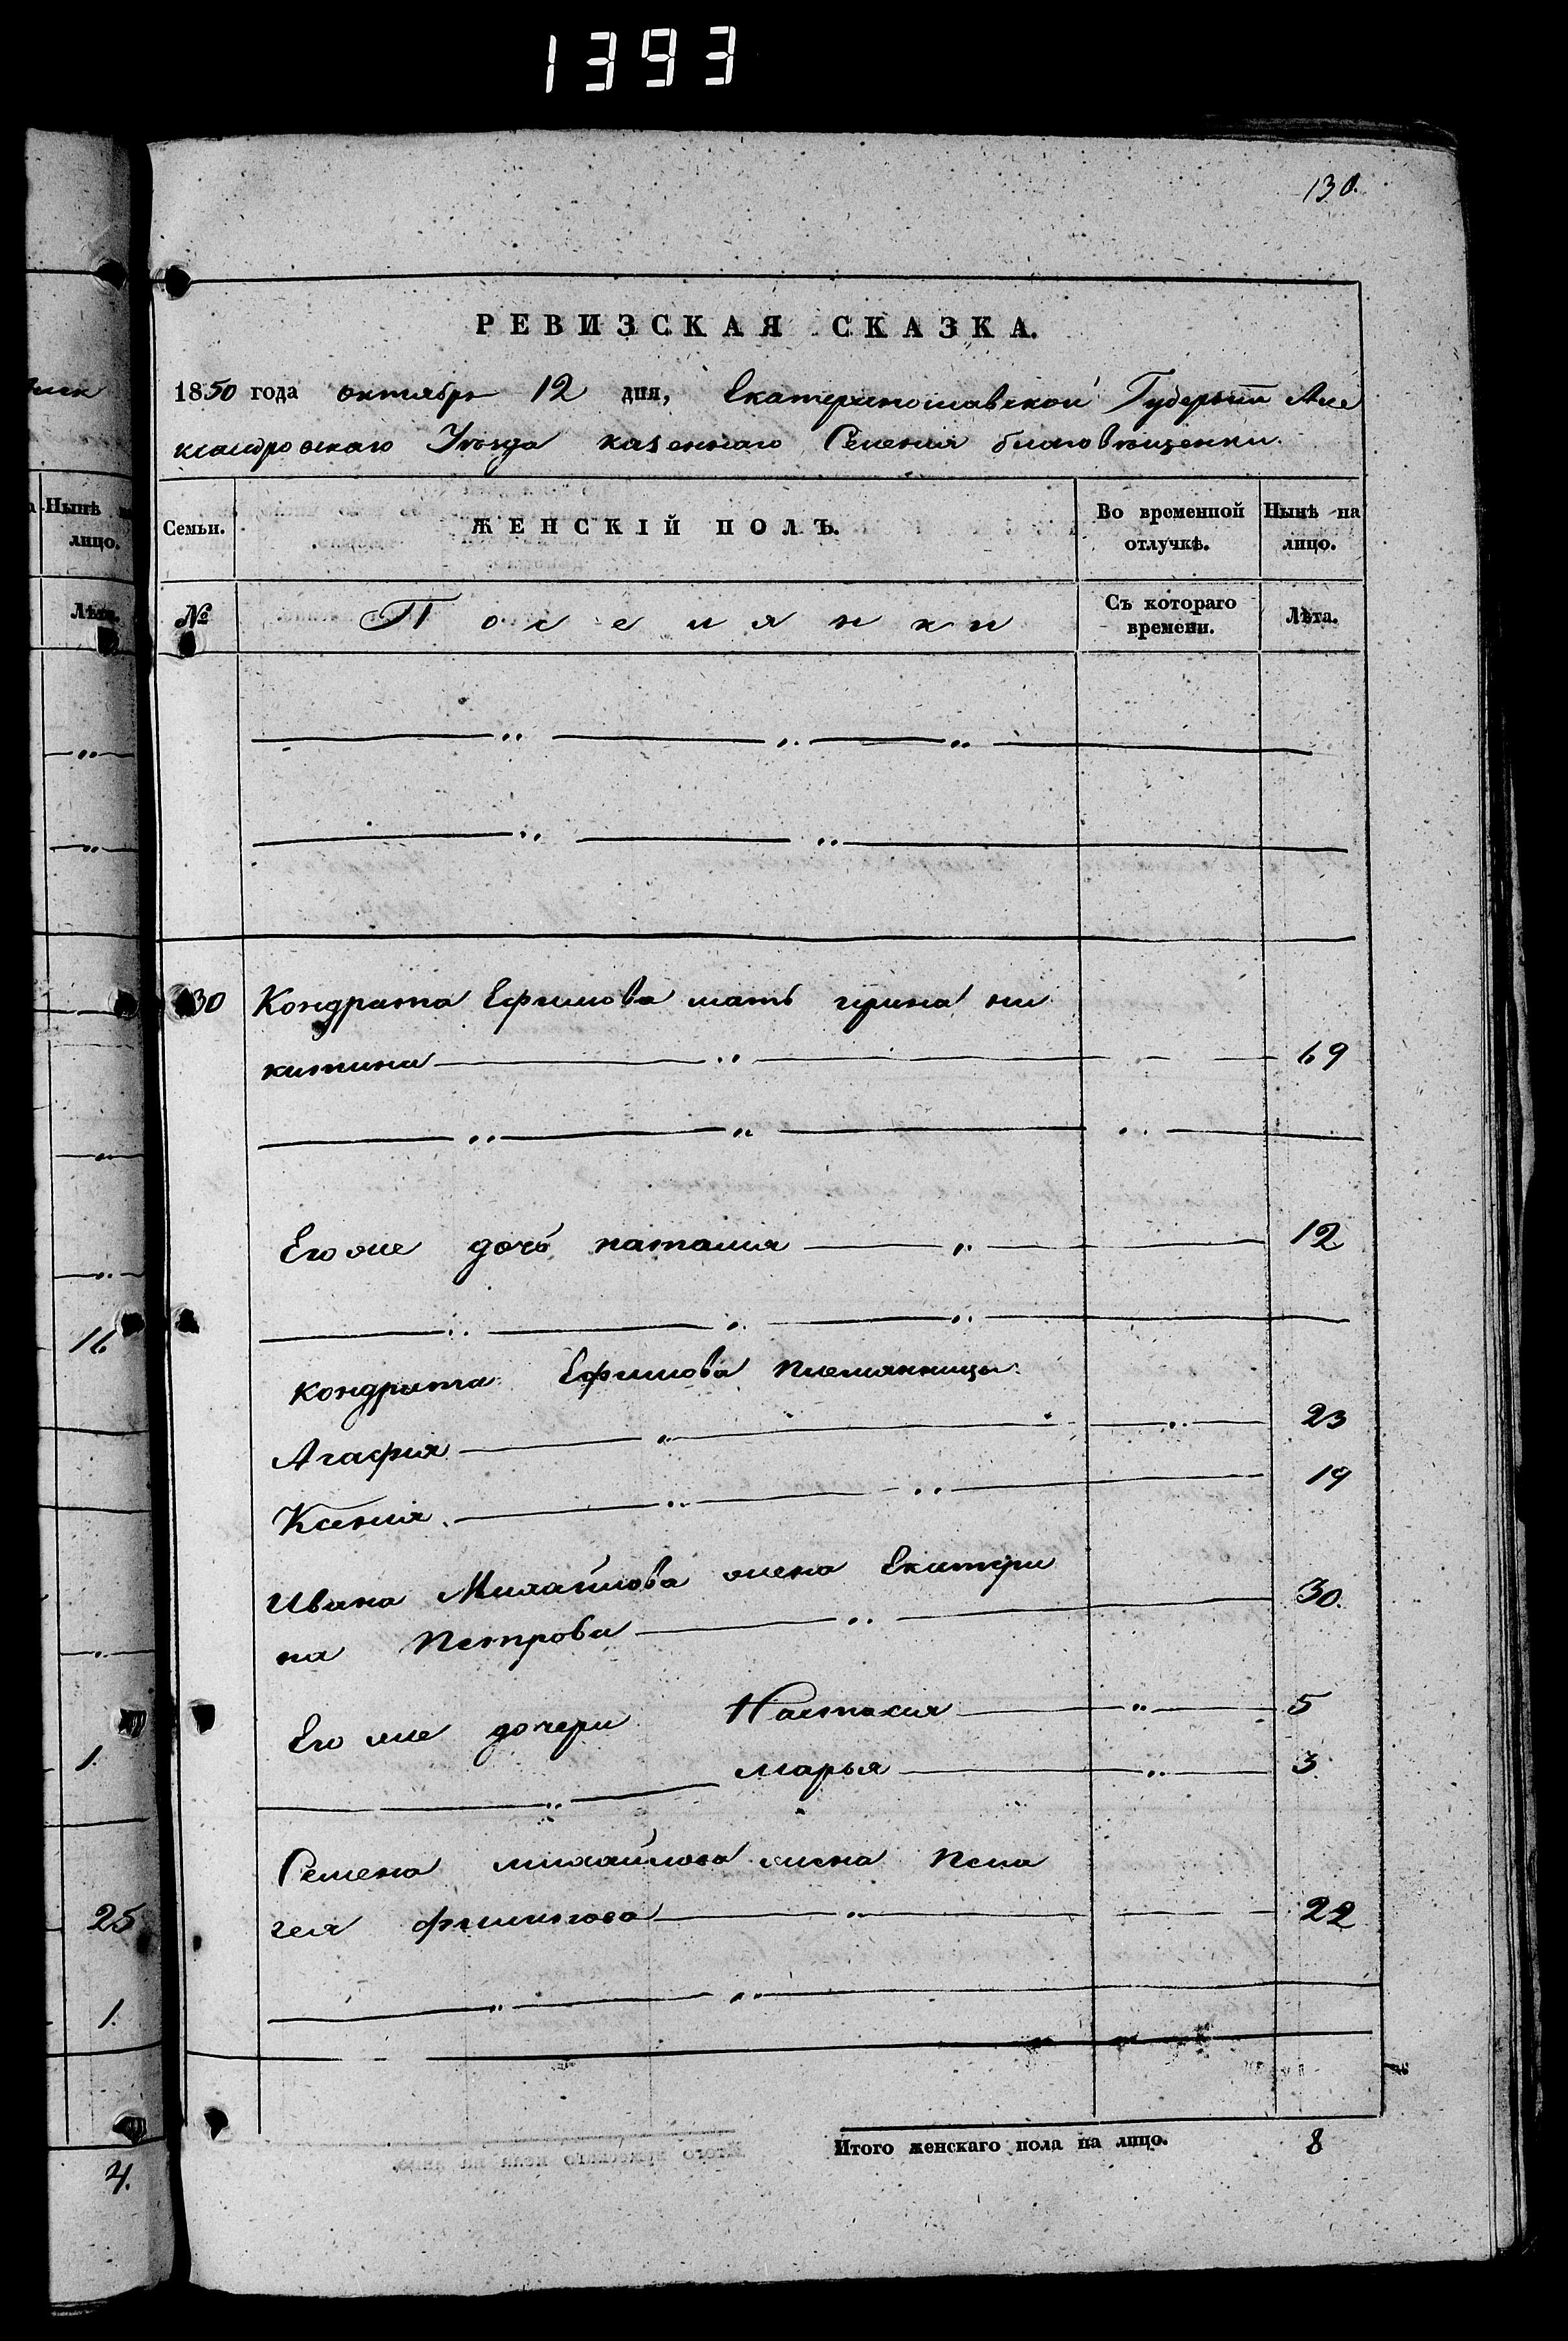 1393
130.
РЕВИЗСКАЯ СКАЗКА.
1850 года октября 12 дня, Екатеринославской Губернии Але
ксандровскаго Уѣзда казеннаго Селения благовѣщенки.
Семьи. ЖЕНСКІЙ ПОЛЪ. Во временной отлучкѣ. Нынѣ на лицо.
№ Поселянки Съ котораго времени. Лѣта.
Нынѣ
лицо.
Лѣта.
30 Кондрата Ефимова мать ирина ни
китина 69
Его же дочь наталия 12
16
Кондрата Ефимова племянницы
Агафия 23
Ксения 19
Ивана Михайлова жена Екатери
на Петрова 30.
Его же дочери Настасия 5
марья 3
1.
Семена михайлова жена Пела
гея 22
25
1.
Итого женскаго пола на лицо. 8
4.